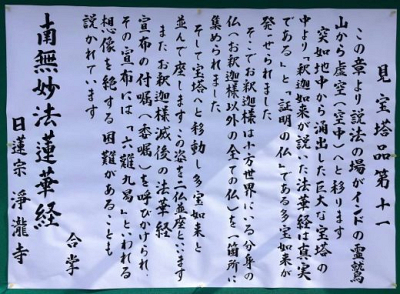 見宝塔品第十一
この章より説法の場がインドの霊鷲
山から虚空(空中)へと移ります
突如地中から涌出した巨大な宝塔の
中より「釈迦如来が説いた法華経は真実
である」と「証明の仏」である多宝如来が
発せられました
そこでお釈迦様は十方世界にいる分身の
仏(お釈迦様以外の全ての仏)を一箇所に
集められました
そして宝塔へと移動し多宝如来と
並んで座します この姿を二仏並座といいます
またお釈迦様滅後の法華経
宣布の付嘱(委嘱)を呼びかけられ、
その宣布には「六難九易」といわれる
想像を絶する困難があることも
説かれています
合掌
南無妙法蓮華経
日蓮宗 浄瀧寺